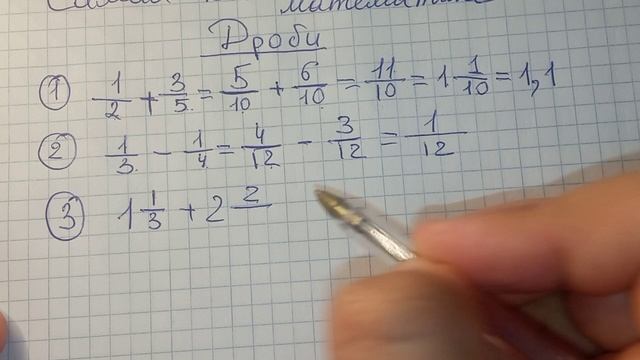 Дроби
① 1/2 + 3/5 = 5/10 + 6/10 = 11/10 = 1 1/10 = 1,1
② 1/3 - 1/4 = 4/12 - 3/12 = 1/12
③ 1 1/3 + 2 2/